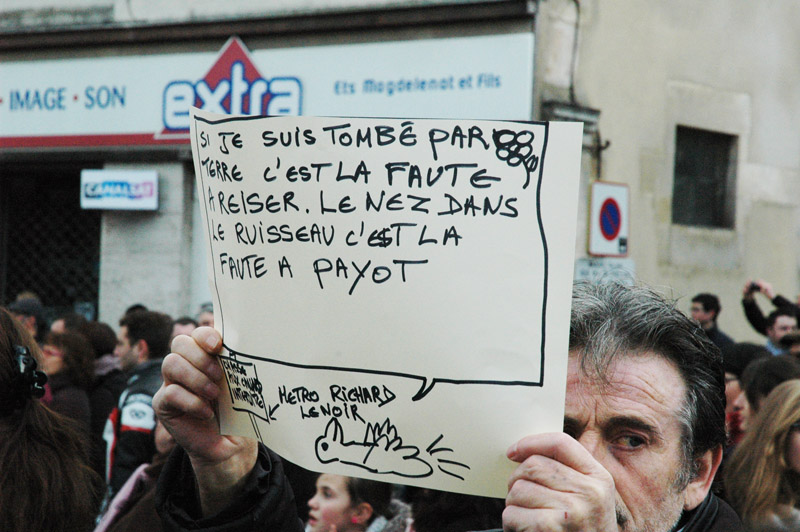 IMAGE • SON
extra
Ets Magdelenat et Fils
CANALSAT
SI JE SUIS TOMBÉ PAR
TERRE C'EST LA FAUTE
A REISER. LE NEZ DANS
LE RUISSEAU C'EST LA
FAUTE A PAYOT
METRO RICHARD
LENOIR